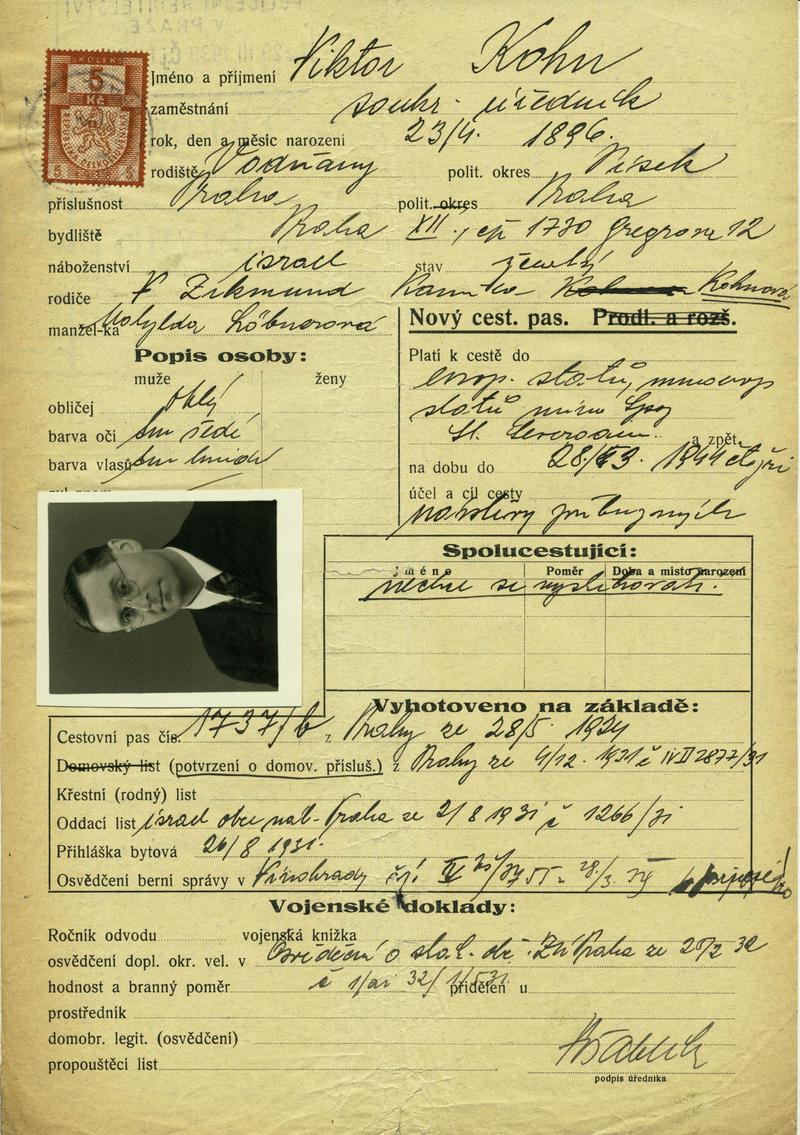 KOLEK
5
Kč
REPUBLIKA ČESKOSLOVENSKÁ
5 5
Jméno a příjmení Viktor Kohn
zaměstnání soukr. úředník
rok, den a měsíc narození 23/4. 1896.
rodiště Vodňany polit. okres Písek
příslušnost Praha polit. okres Praha
bydliště Praha XII., čp 1730 Gregrova 12
náboženství israel stav ženatý
rodiče Zikmund Kohnová
manžel-ka Löbnerová
Nový cest. pas. Prodl. a rozš.
Popis osoby:
muže ženy
obličej oblý
barva očí tm šedé
barva vlasů tm hnědé
Platí k cestě do
evrop. států, mimoevrop
států mimo
a zpět
na dobu do 1944 čtyři
účel a cíl cesty
návštěvy příbuzných
Spolucestující:
jméno Poměr Doba a místo narození
nechce se vystěhovati.
Vyhotoveno na základě:
Cestovní pas čís. 1737/b z Prahy ze 28/5 1924
Domovský list (potvrzení o domov. přísluš.) z Prahy ze 4/12 1931 č IV D 2877/31
Křestní (rodný) list
Oddací list israel obec náb. Praha ze 2/8 1931 č 1266/31
Přihláška bytová 26/8 1931.
Osvědčení berní správy v Vinohrady čj. IV
Vojenské doklady:
Ročník odvodu vojenská knížka
osvědčení dopl. okr. vel. v Osvědčení o stát. Praha ze
hodnost a branný poměr přidělen u
prostředník
domobr. legit. (osvědčení)
propouštěcí list
podpis úředníka